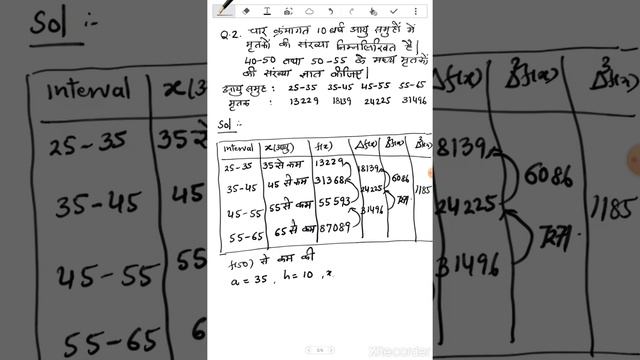 Q.2. चार क्रमागत 10 वर्ष आयु समुहों में
मृतकों की संख्या निम्नलिखित है|
40-50 तथा 50-55 के मध्य मृतकों
की संख्या ज्ञात कीजिए|
आयु समुह : 25-35 35-45 45-55 55-65
मृतक : 13229 18139 24225 31496
Sol :-
Interval x(आयु) f(x) Δf(x) Δ²f(x) Δ³f(x)
25-35 35 से कम 13229
18139
35-45 45 से कम 31368 6086
24225 1185
45-55 55 से कम 55593
31496
55-65 65 से कम 87089
f(50) से कम की
a = 35, h = 10, x
Sol :-
Interval x(3
25-35 35से
35-45 45
45-55 55
55-65 6
Δf(x) Δ²f(x) Δ³f(x)
18139
6086
24225 1185
7271
31496
XRecorder